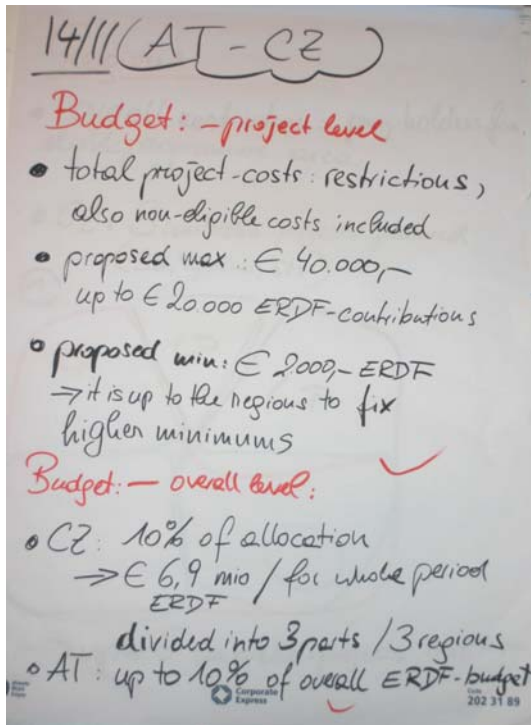 14/11 (AT - CZ)
Budget: - project level
• total project-costs: restrictions,
also non-eligible costs included
• proposed max.: € 40.000,-
up to € 20.000 ERDF-contributions
• proposed min: € 2000,- ERDF
→ it is up to the regions to fix
higher minimums
Budget: - overall level:
• CZ: 10% of allocation
→ € 6,9 mio / for whole period
ERDF
divided into 3 parts / 3 regions
• AT: up to 10% of overall ERDF-budget
Corporate
Express
Code
202 31 89